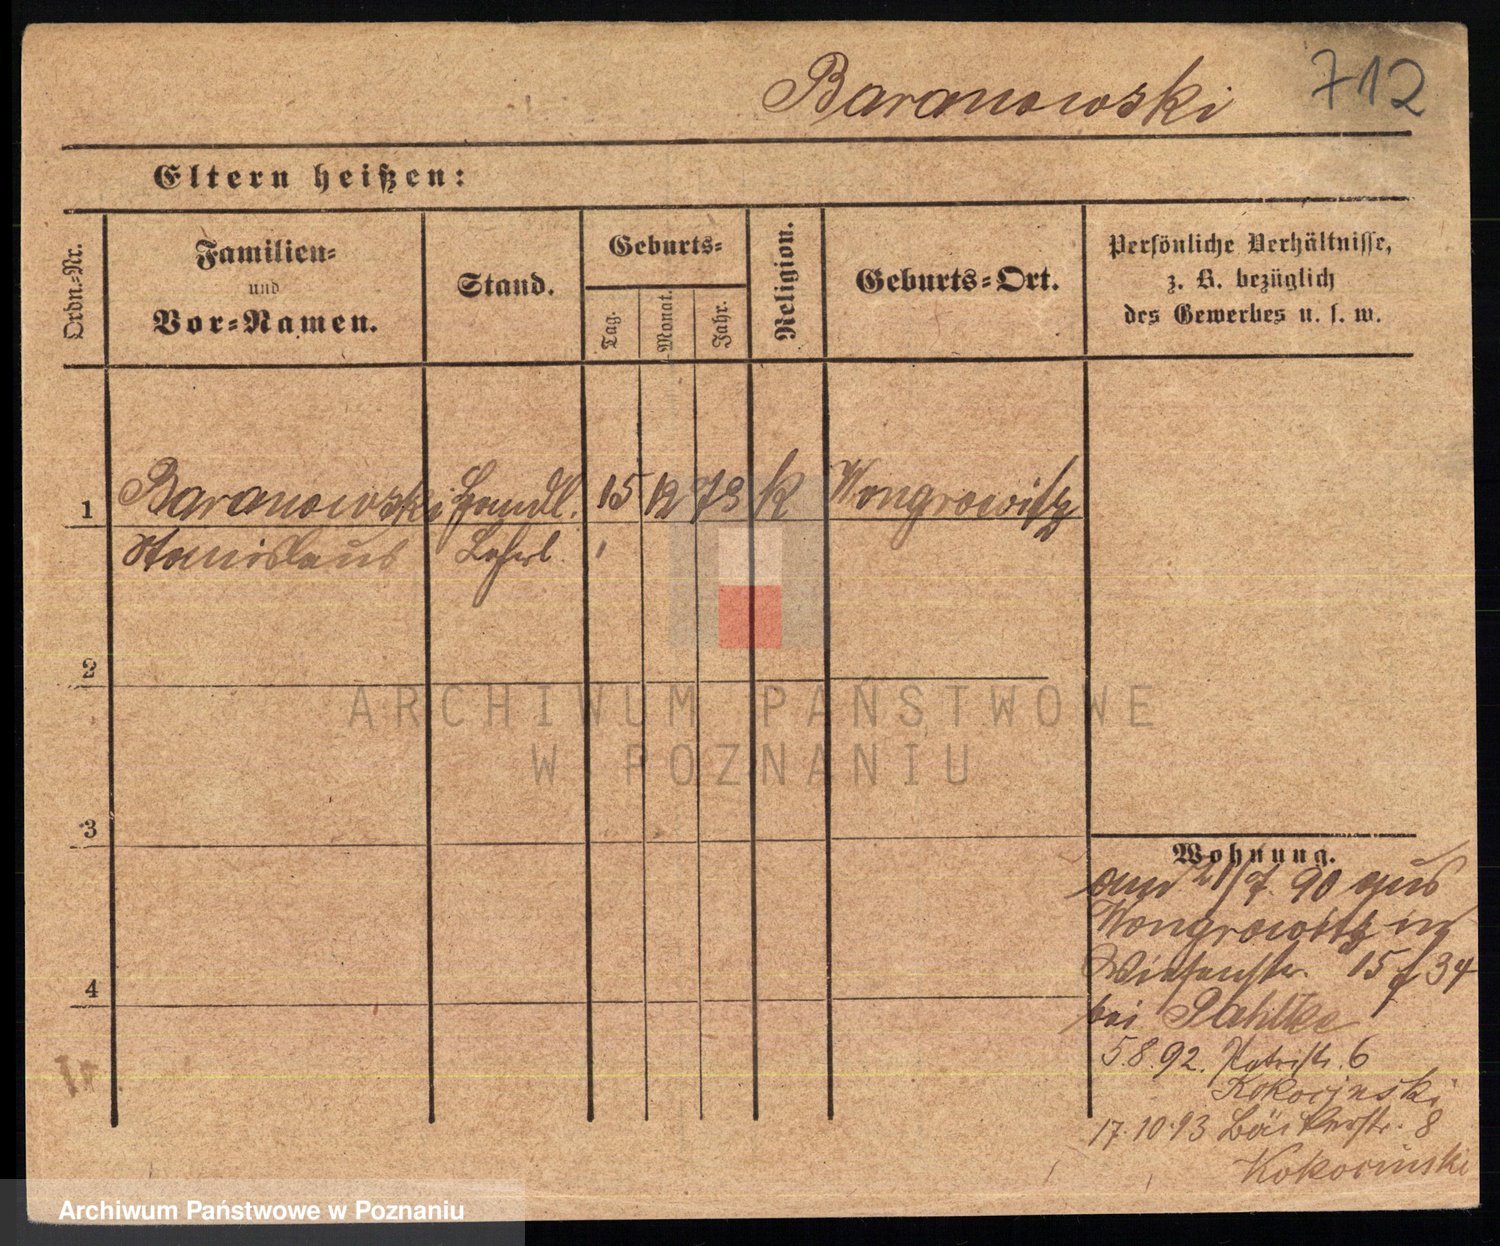 Baranowski 712
Eltern heißen:
Ordn.-Nr.
Familien-
und
Vor-Namen.
Stand.
Geburts-
Tag.
Monat.
Jahr.
Religion.
Geburts-Ort.
Persönliche Verhältnisse,
z. B. bezüglich
des Gewerbes u. s. w.
1 Baranowski Handl. 15 12 73 k Wongrowitz
Stanislaus Lehrl.
2
3
4
ARCHIWUM PAŃSTWOWE
W POZNANIU
Wohnung.
am 21/7. 90 aus
Wongrowitz in
Wiesenstr. 15 34
bei Pahlke
5.8.92. Petristr. 6
Kokocinski
17.10.93 Bäckerstr. 8
Kokocinski
Archiwum Państwowe w Poznaniu